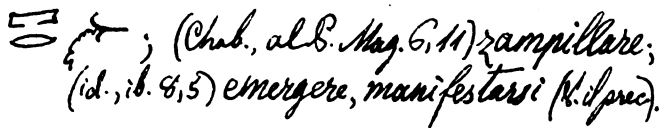 ; (Chab., al P. Mag. 6, 11) zampillare;
(id., ib. 8, 5) emergere, manifestarsi (V. il prec).